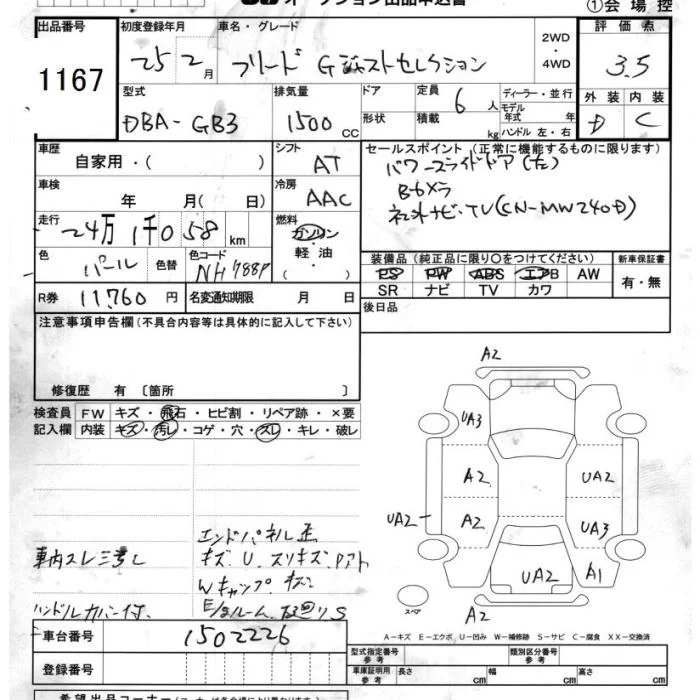 オークション出品申込書
①会場控
出品番号 初度登録年月 車名・グレード 2WD・4WD 評価点
1167 25 2月 フリード Gジャストセレクション 3.5
型式 排気量 ドア 定員 6人 ディーラー・並行 外装 内装
DBA-GB3 1500cc 形状 積載 kg モデル年式 年 ハンドル 左・右 D C
車歴 自家用・( ) シフト AT セールスポイント (正常に機能するものに限ります)
パワースライドドア(左)
Bカメラ
車検 年 月( 日) 冷房 AAC
ナビ・TV(CN-MW240D)
走行 24万1千058km 燃料 ガソリン・軽油・( )
色 パール 色替 色コード NH788P
装備品 (純正品に限り○をつけてください) 新車保証書
PS PW ABS エアB AW 有・無
SR ナビ TV カワ
R券 11,760円 名変通知期限 月 日 後日品
注意事項申告欄(不具合内容等は具体的に記入して下さい)
修復歴 有〔箇所 〕
検査員記入欄 FW キズ・飛石・ヒビ割・リペア跡・×要
内装 キズ・汚レ・コゲ・穴・スレ・キレ・破レ
A2
UA3
A2 UA2
UA2
A2 UA3
UA2 A1
A2
スペア
エンドパネル歪
車内スレ キズ.U.スリキズ.Pアト
Wキャップ キズ
ハンドルカバー付. E/gルーム.下廻りS
A−キズ E−エクボ U−凹み W−補修跡 S−サビ C−腐食 XX−交換済
車台番号 1502226
型式指定番号 参考 類別区分番号 参考
登録番号 車庫証明用 参考 長さ cm 幅 cm 高さ cm
希望出品コーナー(スペースの都合により異なります)